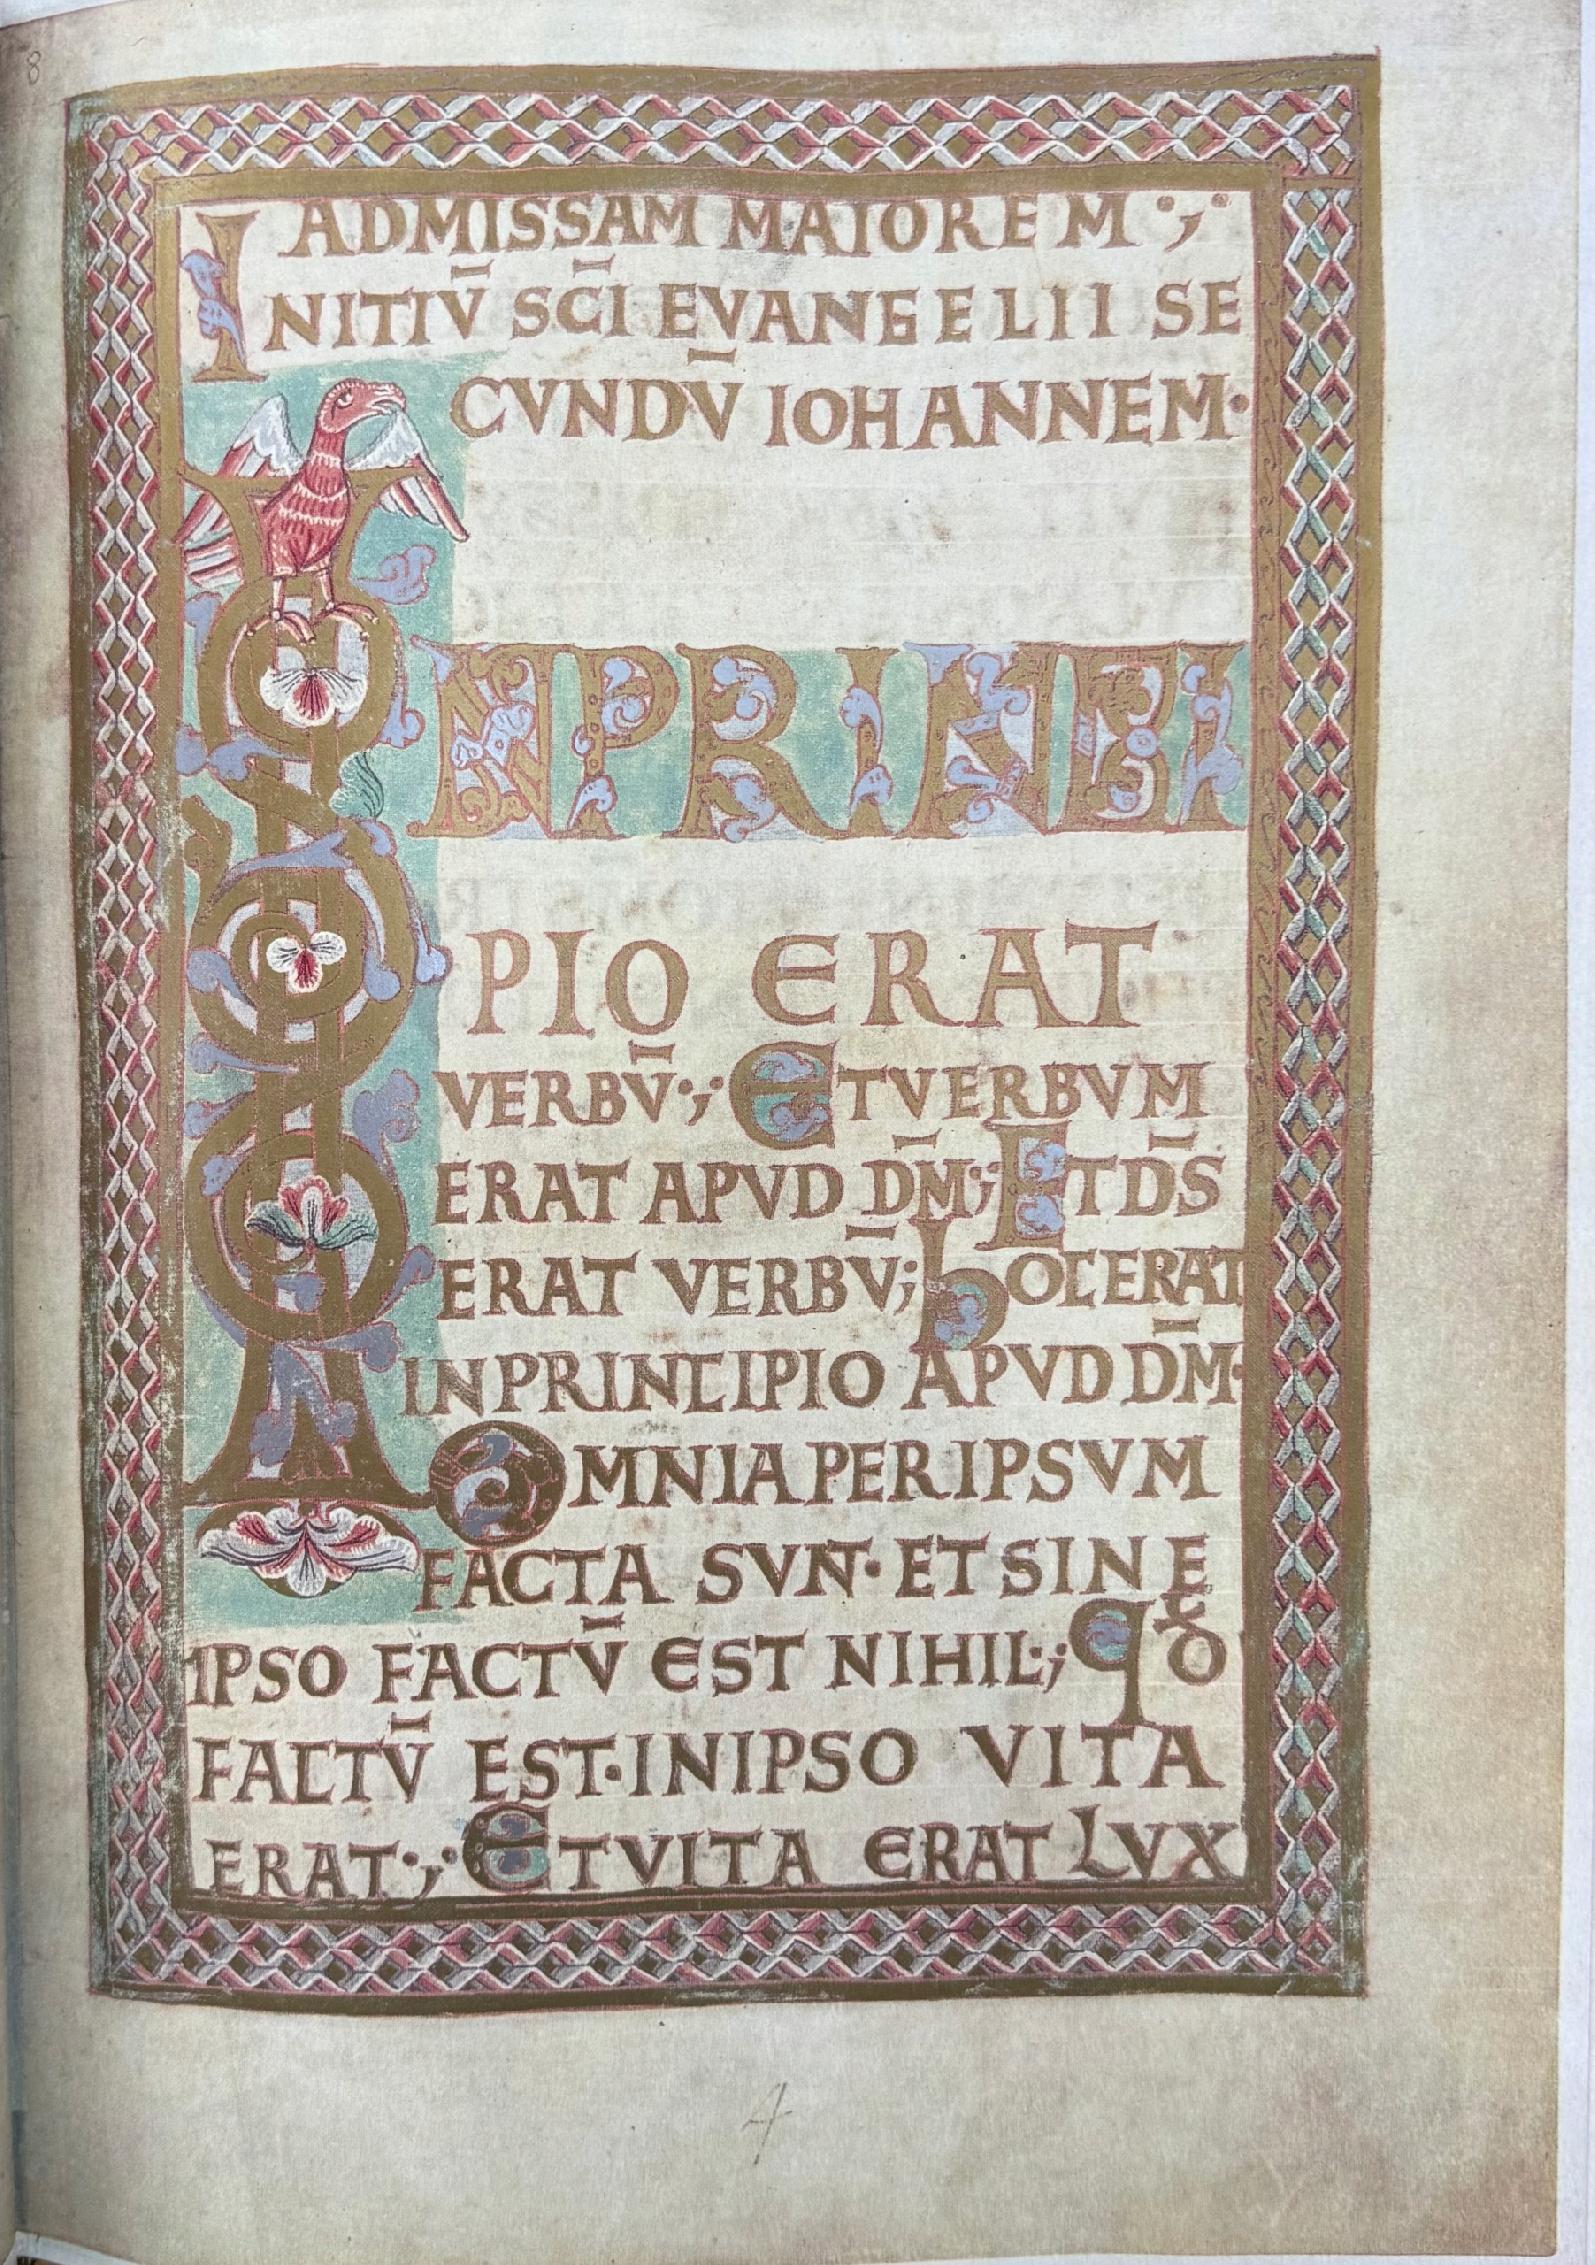 8
ADMISSAM MAIOREM·,·
INITIŪ SC̄I EVANGELII SE
CVNDV̄ IOHANNEM·
INPRINCI
PIO ERAT
VERBV̄·,· ETVERBVM
ERAT APVD DM̄·, ET DS̄
ERAT VERBV̄; hOC ERAT
INPRINCIPIO APVD DM̄·
OMNIA PER IPSVM
FACTA SVNT· ET SINE
IPSO FACTV̄ EST NIHIL·, qđ
FACTV̄ EST· IN IPSO VITA
ERAT·,· ET VITA ERAT LVX
4